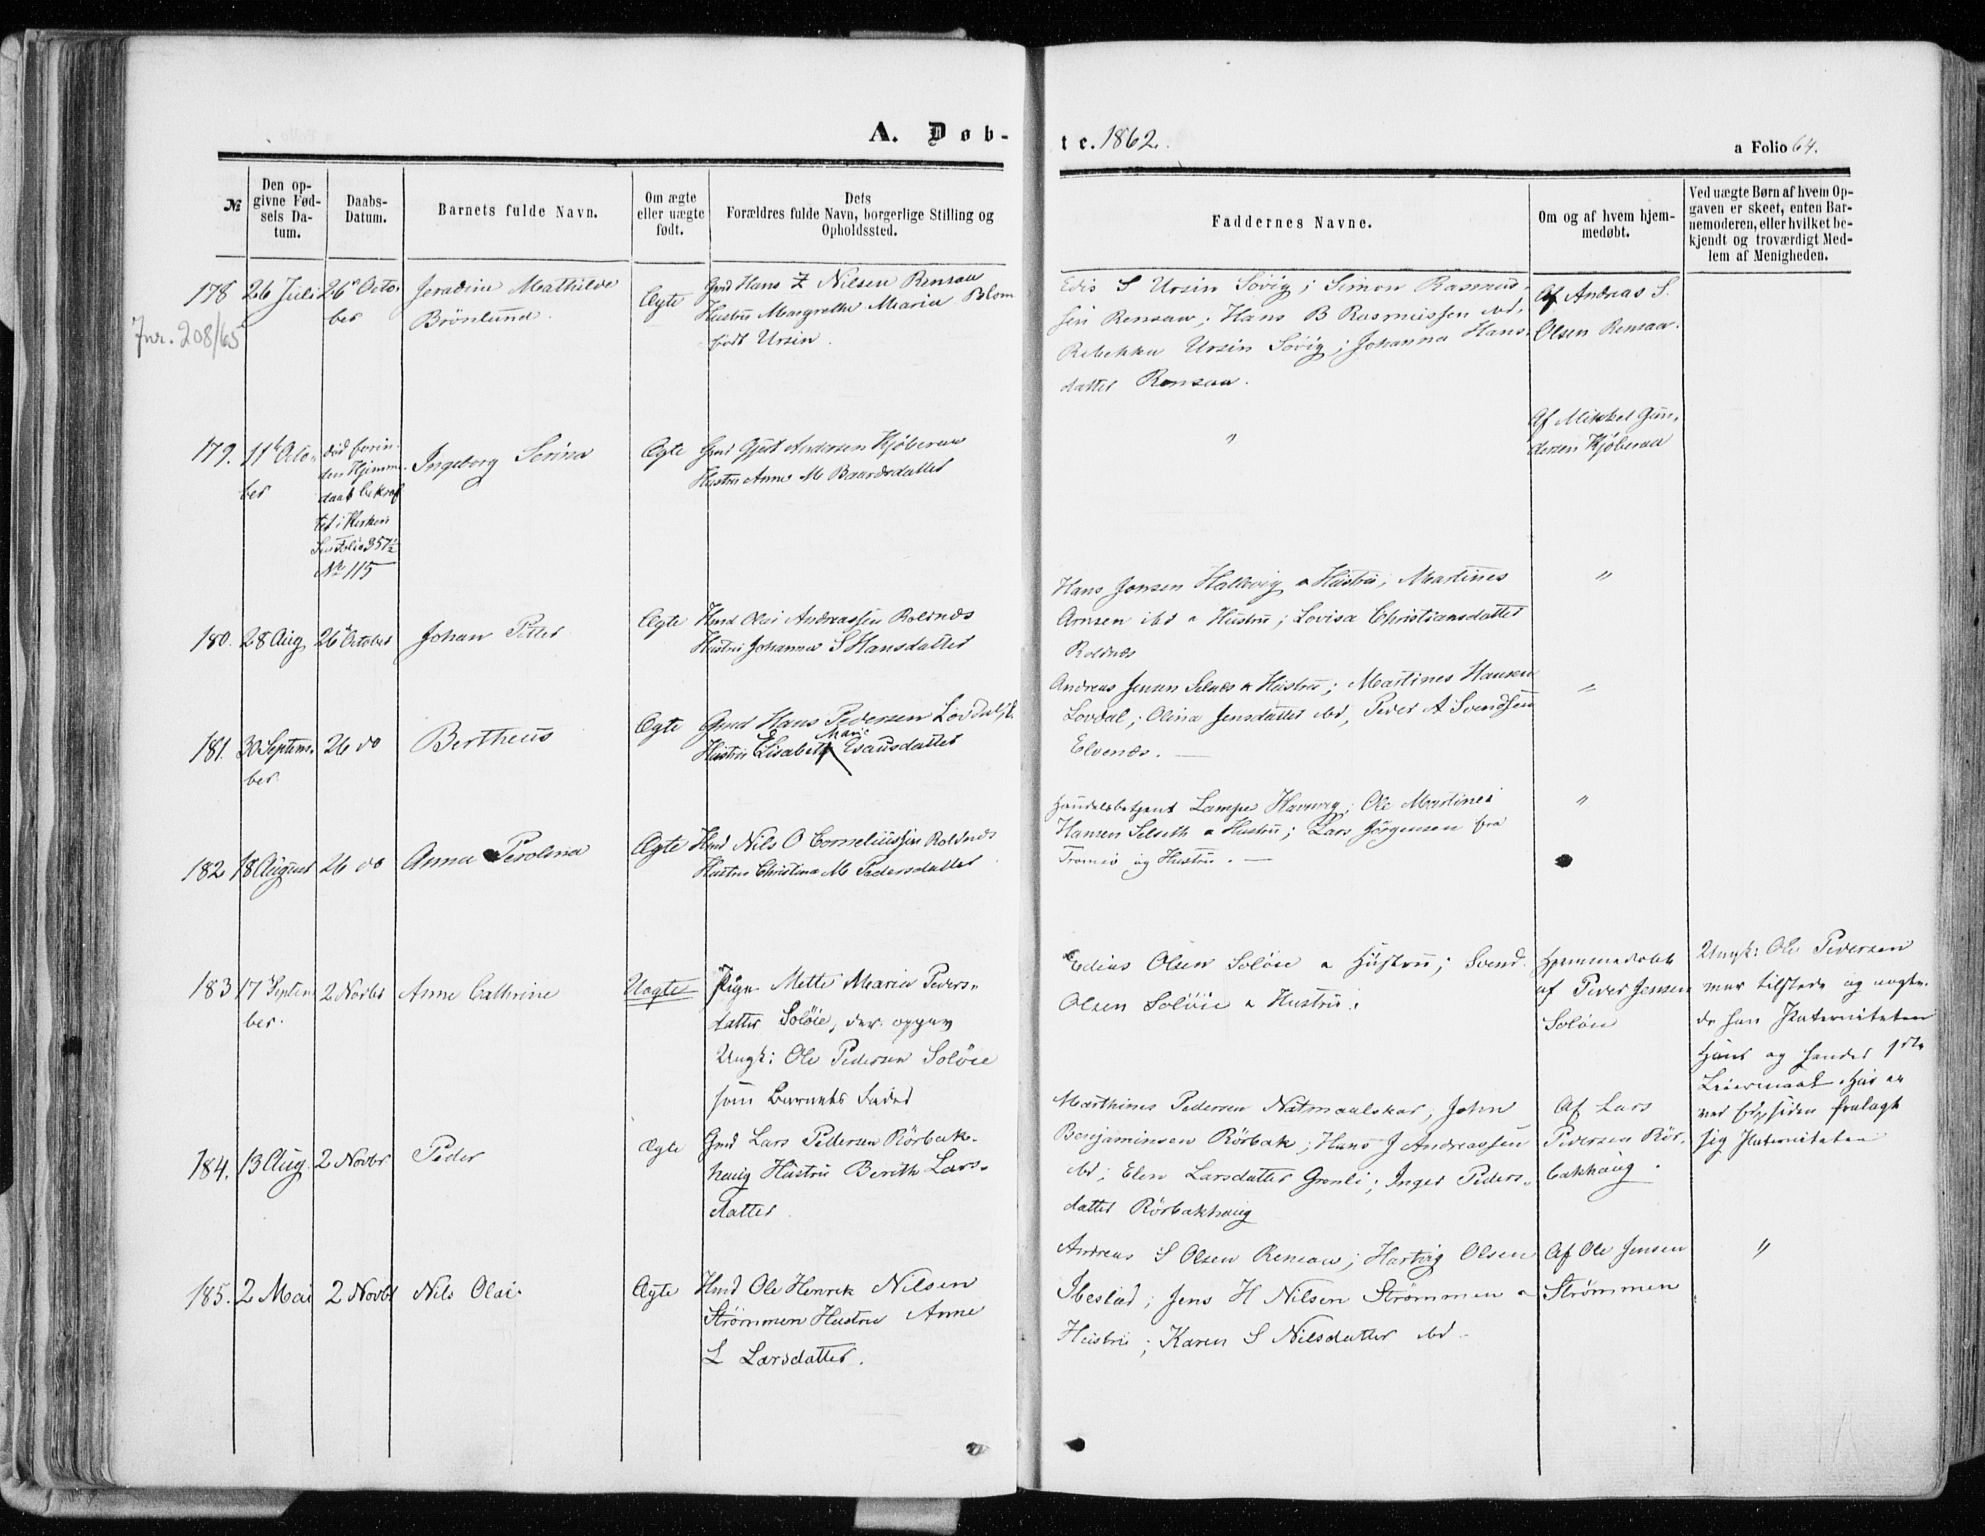 A. Døb-
te. 1862.
a Folio 64.
№
Den op-
givne Fød-
sels Da-
tum.
Daabs-
Datum.
Barnets fulde Navn.
Om ægte
eller uægte
født.
Dets
Forældres fulde Navn, borgerlige Stilling og
Opholdssted.
Faddernes Navne.
Om og af hvem hjem-
medøbt.
Ved uægte Børn af hvem Op-
gaven er skeet, enten Bar-
nemoderen, eller hvilket be-
kjendt og troværdigt Med-
lem af Menigheden.
178
Jnr. 208/65
26 Juli
26 Octo-
ber
Jeradine Mathilde
Brönlund.
Ægte
Gmd Hans Z Nilsen Rensaa
Hustru Margrethe Maria Blom
født Ursin.
Edis S Ursin Sövig; Simon Rasmus-
sen Rensaa; Hans B Rasmussen ibd,
Rebekka Ursin Sövig; Johanna Hans-
datter Rensaa.
Af Andreas S.
Olsen Rensaa.
179.
11 Octo-
ber
død forin-
den Hjemme-
daab bekræf
tet i Kirken
See Folio 357½
No 115
Ingeborg Serina
Ægte
Gmd Gjert Andersen Kjøberaa
Hustru Anne M Baardsdatter
"
Af Mikkel Gun-
dersen Kjøberaa
180.
28 Aug
26 October
Johan Peter
Ægte
Hmd Olai Andreassen Roldnæs
Hustru Johanna S Hansdatter
Hans Jonsen Hallvig & Hustru; Martines
Arnsen ibd & Hustru; Lovisa Christiansdatter
Roldnæs
"
181.
30 Septem-
ber
26 do
Bertheus
Ægte
Gmd Hans Pedersen Lovdal
Marie
Hustru Elisabeth Esausdatter
Andreas Jensen Selnæs & Hustru; Martines Hansen
Lovdal; Olina Jensdatter ibd, Peder A Svendsen
Elvenæs.
"
182
18 August
26 do
Anna Perolina
Ægte
Hmd Nils O Corneliussen Roldnæs
Hustru Christina M Pedersdatter
Handelsbetjent Lampe Havnvig; Ole Martines
Hansen Selseth & Hustru; Lars Jörgensen fra
Tromsö og Hustru.
"
183
17 Septem
ber.
2 Novbr
Anne Cathrine
Uægte
Pige Mette Maria Peders-
datter Solöie, der opgav
Ungk: Ole Pedersen Solöie
som Barnets Fader
Edias Olsen Solöie & Hustru; Svend
Olsen Solöie & Hustru.
Hjemmedöbt
af Peder Jensen
Solöie
Ungk: Ole Pedersen
var tilstede og vedgik
Paterniteten
Hans og hendes 1ste
Leiermaal. Har
siden fralagt
sig Paterniteten
184.
13 Aug.
2 Novbr
Peder
Ægte
Gmd Lars Pedersen Rörbak-
haug Hustru Berith Lars-
datter.
Marthines Pedersen Natmaalskar; John
Benjaminsen Rörbak; Hans J Andreassen
ibd; Elen Larsdatter Grønli; Inger Peders-
datter Rörbakhaug
Af Lars
Pedersen Rör-
bakhaug.
185.
2 Mai
2 Novbr
Nils Olai.
Ægte
Hmd Ole Henrik Nilsen
Strömmen Hustru Anne
L Larsdatter.
Andreas S Olsen Rensaa; Hartvig Olsen
Ibestad; Jens H Nilsen Strömmen &
Hustru; Karen S Nilsdatter ibd.
Af Ole Jensen
Strömmen
"